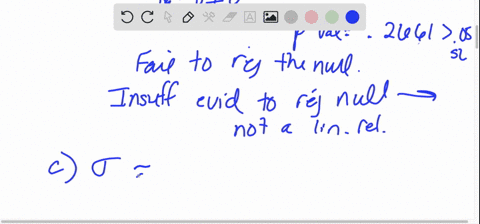 p val = .2661 > .05
Fail to rej the null.
Insuff evid to rej null →
not a lin. rel.
c) σ ≈